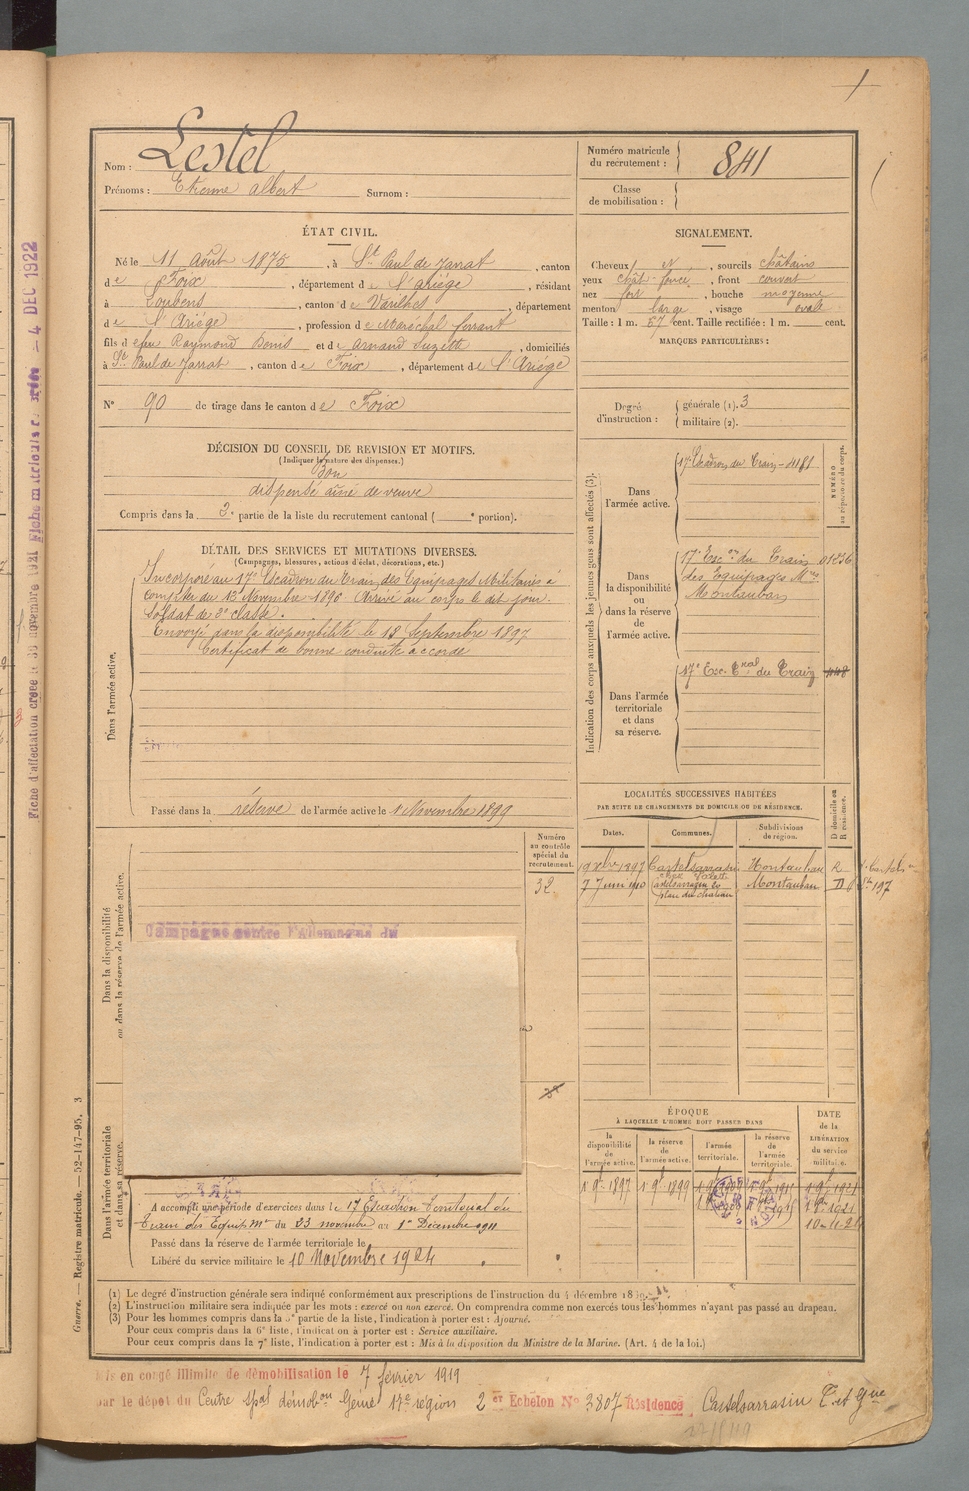 Nom : Lestel
Prénoms : Etienne Albert Surnom :
Numéro matricule du recrutement : 841
Classe de mobilisation :
ÉTAT CIVIL.
Né le 11 Août 1875, à St Paul de Jarrat, canton
de Foix, département de l'Ariége, résidant
à Loubens, canton de Varilhes, département
de l'Ariége, profession de Maréchal ferrant
fils de feu Raymond Denis et de Arnaud Suzette, domiciliés
à St Paul de Jarrat, canton de Foix, département de l'Ariége
N° 90 de tirage dans le canton de Foix
SIGNALEMENT.
Cheveux N, sourcils châtains
yeux chât-foncé, front couvert
nez fort, bouche moyenne
menton large, visage ovale
Taille : 1 m. 57 cent. Taille rectifiée : 1 m. cent.
MARQUES PARTICULIÈRES :
Degré d'instruction : générale (1). 3
militaire (2).
DÉCISION DU CONSEIL DE REVISION ET MOTIFS.
(Indiquer la nature des dispenses.)
Bon
dispensé aîné de veuve
Compris dans la 2e partie de la liste du recrutement cantonal ( e portion).
DÉTAIL DES SERVICES ET MUTATIONS DIVERSES.
(Campagnes, blessures, actions d'éclat, décorations, etc.)
Dans l'armée active.
Incorporé au 17e Escadron du Train des Equipages Militaires à
compter du 13 Novembre 1896. Arrivé au corps le dit jour.
Soldat de 2e classe.
Envoyé dans la disponibilité le 18 Septembre 1897
Certificat de bonne conduite accordé
Passé dans la réserve de l'armée active le 1 Novembre 1899
Indication des corps auxquels les jeunes gens sont affectés (3).
NUMÉRO au répertoire du corps.
Dans l'armée active.
17e Escadron du Train - 4181
Dans la disponibilité ou dans la réserve de l'armée active.
17e Escon du Train 01236
des Equipages Mres
Montauban
Dans l'armée territoriale et dans sa réserve.
17e Esc. Tral du Train 448
LOCALITÉS SUCCESSIVES HABITÉES
PAR SUITE DE CHANGEMENTS DE DOMICILE OU DE RÉSIDENCE.
Dates. Communes. Subdivisions de région. D domicile ou R résidence.
19 Xbre 1897 Castelsarrasin Montauban R
7 Juin 1910 Castelsarrasin Montauban D
197
Numéro au contrôle spécial du recrutement.
32
Dans la disponibilité ou dans la réserve de l'armée active.
Campagne contre l'Allemagne du
ÉPOQUE
À LAQUELLE L'HOMME DOIT PASSER DANS
la disponibilité de l'armée active. la réserve de l'armée active. l'armée territoriale. la réserve de l'armée territoriale.
DATE de la LIBÉRATION du service militaire.
1 9e 1897 1 9e 1899
Dans l'armée territoriale et dans sa réserve.
A accompli une période d'exercices dans le 17 Escadron Territorial du
Train des Equip. Mres du 23 novembre au 1er Décembre 1911
Passé dans la réserve de l'armée territoriale le
Libéré du service militaire le 10 Novembre 1924
(1) Le degré d'instruction générale sera indiqué conformément aux prescriptions de l'instruction du 4 décembre 18
(2) L'instruction militaire sera indiquée par les mots : exercé ou non exercé. On comprendra comme non exercés tous les hommes n'ayant pas passé au drapeau.
(3) Pour les hommes compris dans la 5e partie de la liste, l'indication à porter est : Ajourné.
Pour ceux compris dans la 6e liste, l'indication à porter est : Service auxiliaire.
Pour ceux compris dans la 7e liste, l'indication à porter est : Mis à la disposition du Ministre de la Marine. (Art. 4 de la loi.)
Guerre. — Registre matricule. — 52-147-95. 3
Mis en congé illimité de démobilisation le 7 février 1919
par le dépôt du Centre spal démobon Génie 17e région 2er Echelon N° 3807 Résidence Castelsarrasin T. et Gne
Fiche d'affectation créée le 30 novembre 1921
4 DEC 1922